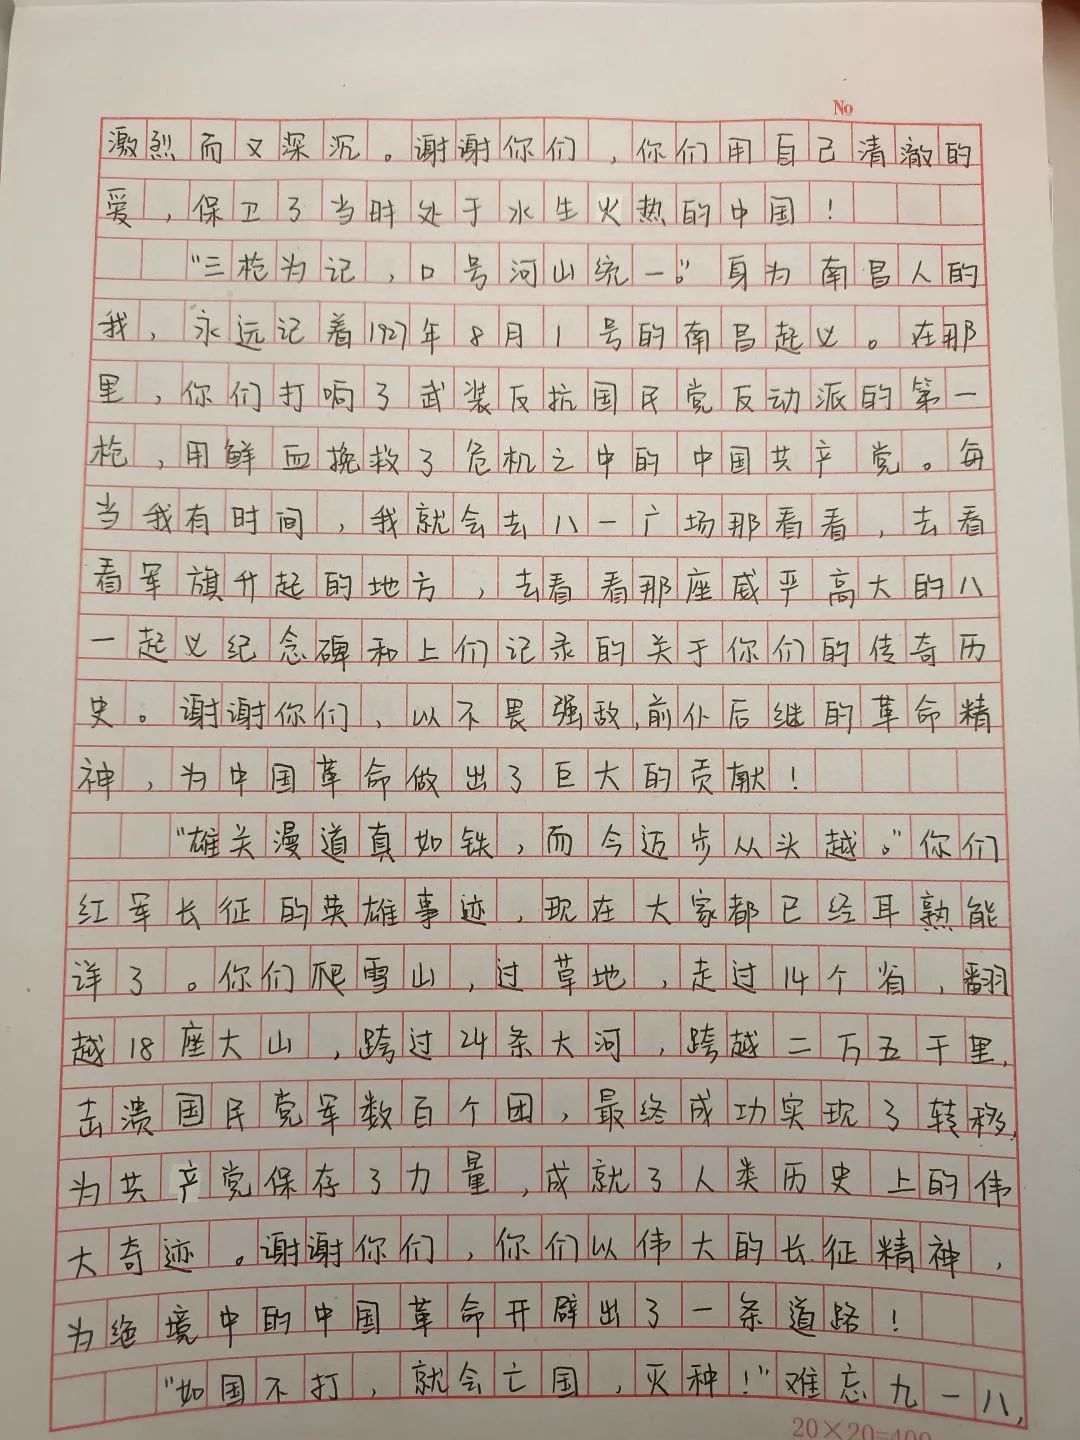 No
激烈而又深沉。谢谢你们，你们用自己清澈的
爱，保卫了当时处于水生火热的中国！
“三枪为记，口号河山统一。”身为南昌人的
我，永远记着1927年8月1号的南昌起义。在那
里，你们打响了武装反抗国民党反动派的第一
枪，用鲜血挽救了危机之中的中国共产党。每
当我有时间，我就会去八一广场那看看，去看
看军旗升起的地方，去看看那座威严高大的八
一起义纪念碑和上们记录的关于你们的传奇历
史。谢谢你们，以不畏强敌，前仆后继的革命精
神，为中国革命做出了巨大的贡献！
“雄关漫道真如铁，而今迈步从头越。”你们
红军长征的英雄事迹，现在大家都已经耳熟能
详了。你们爬雪山，过草地，走过14个省，翻
越18座大山，跨过24条大河，跨越二万五千里，
击溃国民党军数百个团，最终成功实现了转移，
为共产党保存了力量，成就了人类历史上的伟
大奇迹。谢谢你们，你们以伟大的长征精神，
为绝境中的中国革命开辟出了一条道路！
“如国不打，就会亡国，灭种！”难忘九一八，
20×20=400